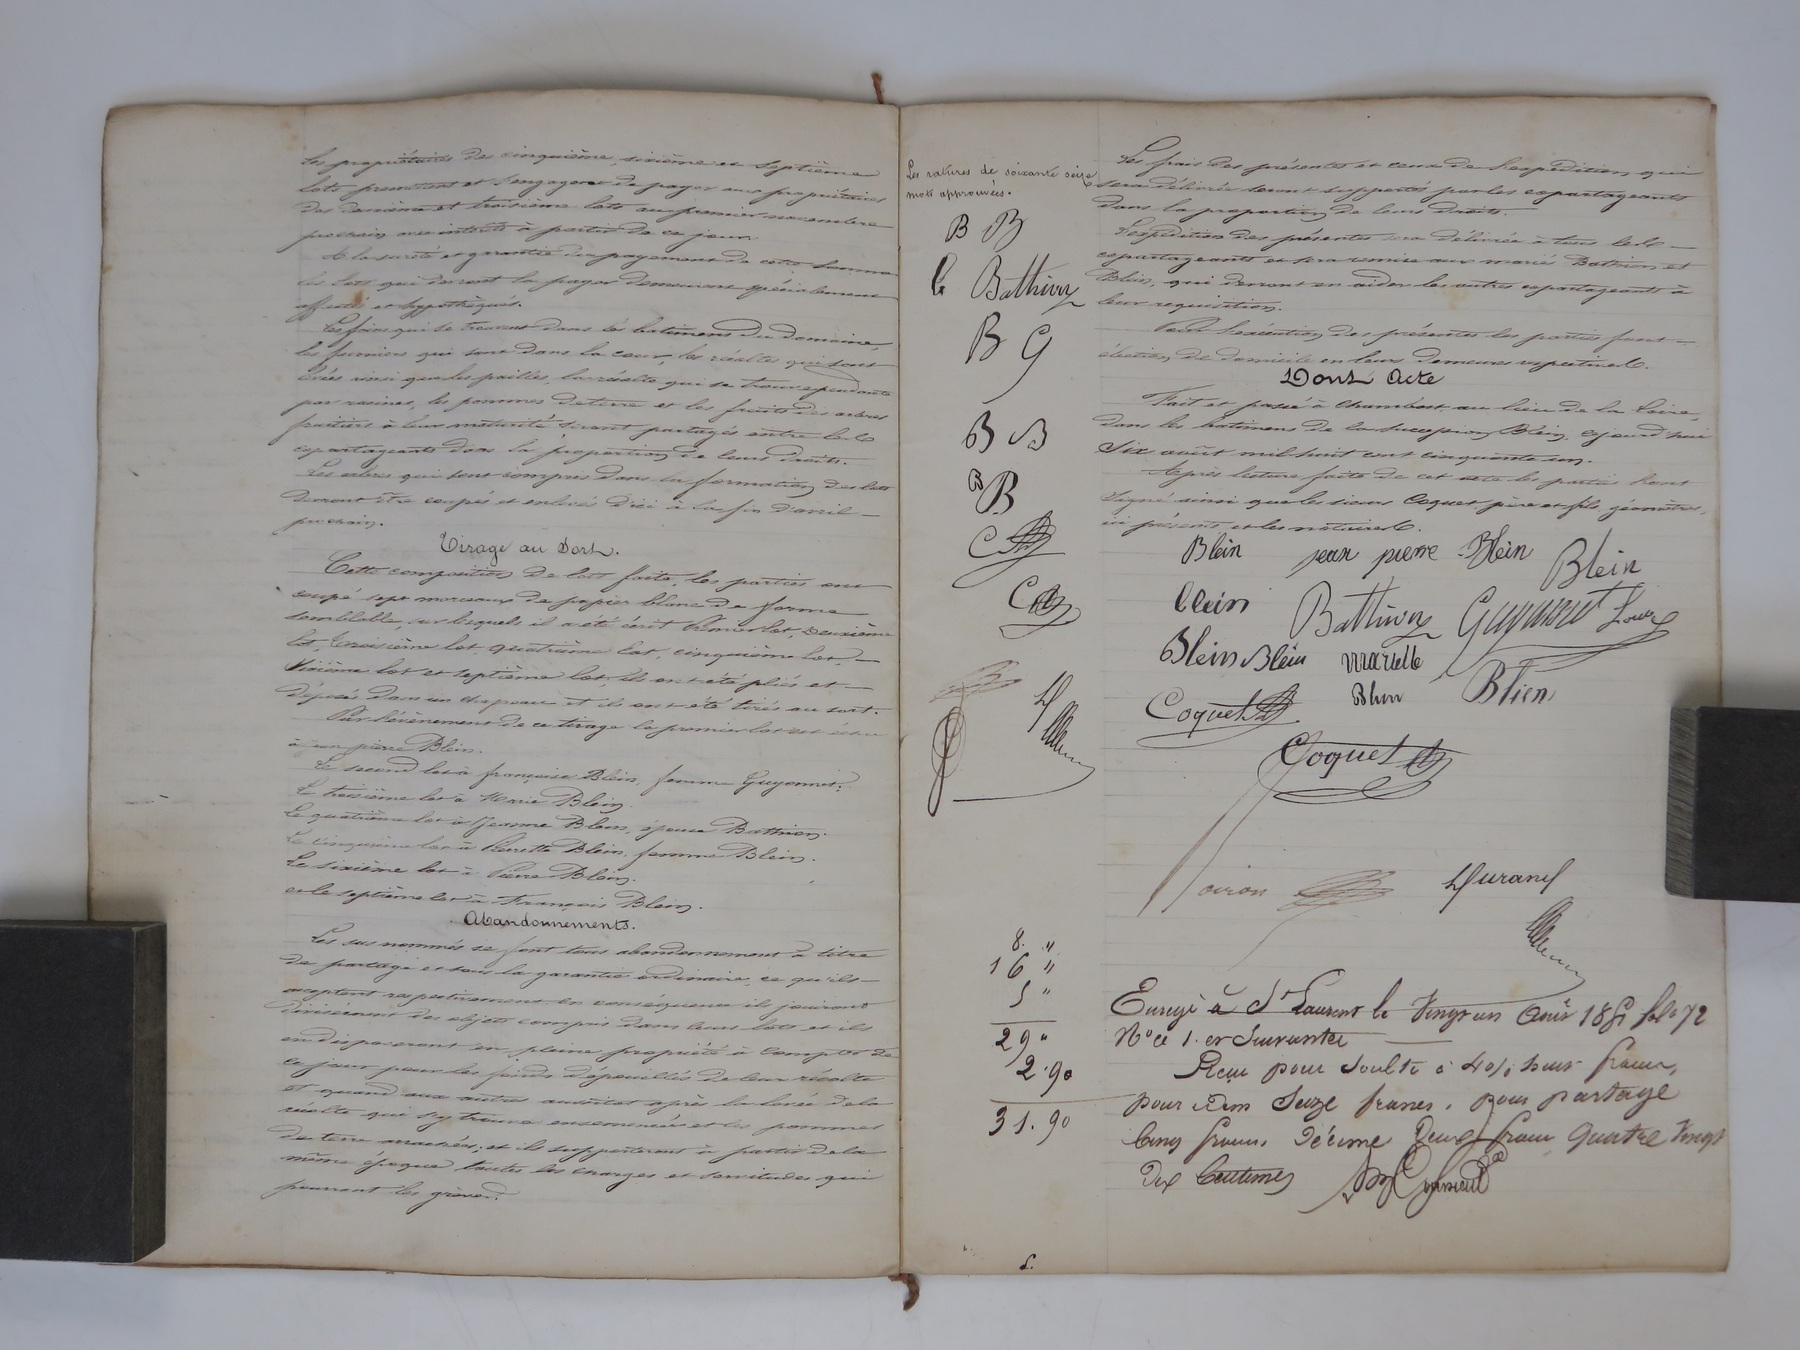 Les propriétaires des cinquième, sixième et septième
lots promettent et s'engagent de payer aux propriétaires
des deuxième et troisième lots au premier novembre
prochain avec intérêts à partir de ce jour.
A la sureté et garantie du payement de cette somme
les lots qui doivent la payer demeurent spécialement
affectés et hypothéqués.
Les foins qui se trouvent dans les batimens du domaine,
les fumiers qui sont dans la cour, les récoltes qui sont
levées ainsi que les pailles, la récolte qui se trouve pendante
par racines, les pommes de terre et les fruits des arbres
fruitiers à leur maturité, seront partagés entre les
copartageants dans la proportion de leurs droits.
Les arbres qui sont compris dans la formation des lots
devront être coupés et enlevés d'ici à la fin d'avril
prochain.
Tirage au Sort.
Cette composition de lots faite, les parties ont
coupé sept morceaux de papier blanc de forme
semblable, sur lesquels il a été écrit Premier lot, Deuxième
lot, troisième lot, quatrième lot, cinquième lot,
sixième lot et septième lot, ils ont été pliés et
déposés dans un chapeau et ils ont été tirés au sort.
Par l'évènement de ce tirage le premier lot est échu
à Jean pierre Blein.
Le second lot à françoise Blein, femme Guyonnet.
Le troisième lot à Marie Blein.
Le quatrième lot à Jeanne Blein, épouse Bathion.
Le cinquième lot à Pierrette Blein, femme Blein.
Le sixième lot à Pierre Blein.
et le septième lot à François Blein.
Abandonnements.
Les sus nommés se font tous abandonnement à titre
de partage et sous la garantie ordinaire, ce qu'ils
acceptent respectivement en conséquence ils jouiront
divisément des objets compris dans leurs lots et ils
en disposeront en pleine propriété à compter de
ce jour pour les fonds dépouillés de leur récolte
et quand aux autres aussitot après la levée de la
récolte qui s'y trouve ensemencée et les pommes
de terre arrachées, et ils supporteront à partir de la
même époque toutes les charges et servitudes qui
pourront les grever.
Les ratures de soixante seize
mots approuvées.
B B
b Bathion
B G
B B
B B
C
C
Les frais des présentes et ceux de l'expédition qui
sera délivrée seront supportés par les copartageants
dans la proportion de leurs droits.
L'expédition des présentes sera délivrée à tous les
copartageants et sera remise aux mariés Bathion et
Blein, qui devront en aider les autres copartageants à
leur requisition.
Pour l'exécution des présentes les parties font
élection de domicile en leurs demeures respectives.
Dont Acte
Fait et passé à Chambost au lieu de la Loire,
dans les batimens de la succession Blein, cejourd'hui
Six août mil huit cent cinquante un.
Après lecture faite de cet acte les parties l'ont
signé ainsi que les sieurs Coquet père et fils, géomètres,
ici présents et les notaires.
Blein jean pierre Blein Blein
blein Bathion Guyonnet
Blein Blein mariette
Blein Blien
Coquet
Coquet
Voiron Durand
8. "
16 "
5 "
29 "
2.90
31.90
Enregé à St Laurent le Vingt un Août 1851 fol. 72
No Ce 1. et Suivantes
Reçu pour soulte à 4% huit francs,
pour idem Seize francs, pour partage
Cinq francs, Décime deux francs Quatre Vingt
Dix Centimes